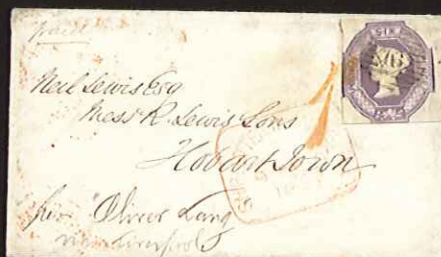 paid
Neil Lewis Esq
Messrs R. Lewis & Sons
Hobart Town
per "Oliver Lang"
via Liverpool
SIX